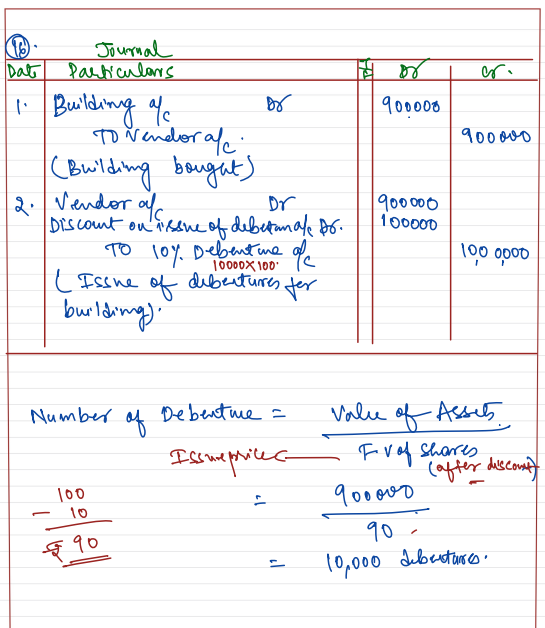 16.
Journal
Date Particulars L F Dr Cr.
1. Building a/c Dr 900000
TO Vendor a/c. 900000
(Building bought)
2. Vendor a/c Dr 900000
Discount on issue of debenture a/c Dr. 100000
TO 10% Debenture a/c 100,0000
10000X100
( Issue of debentures for
building).
Number of Debenture = Value of Assets
Issue price F v of shares
(after discount)
100 = 900000
- 10 90
₹ 90 = 10,000 debentures.